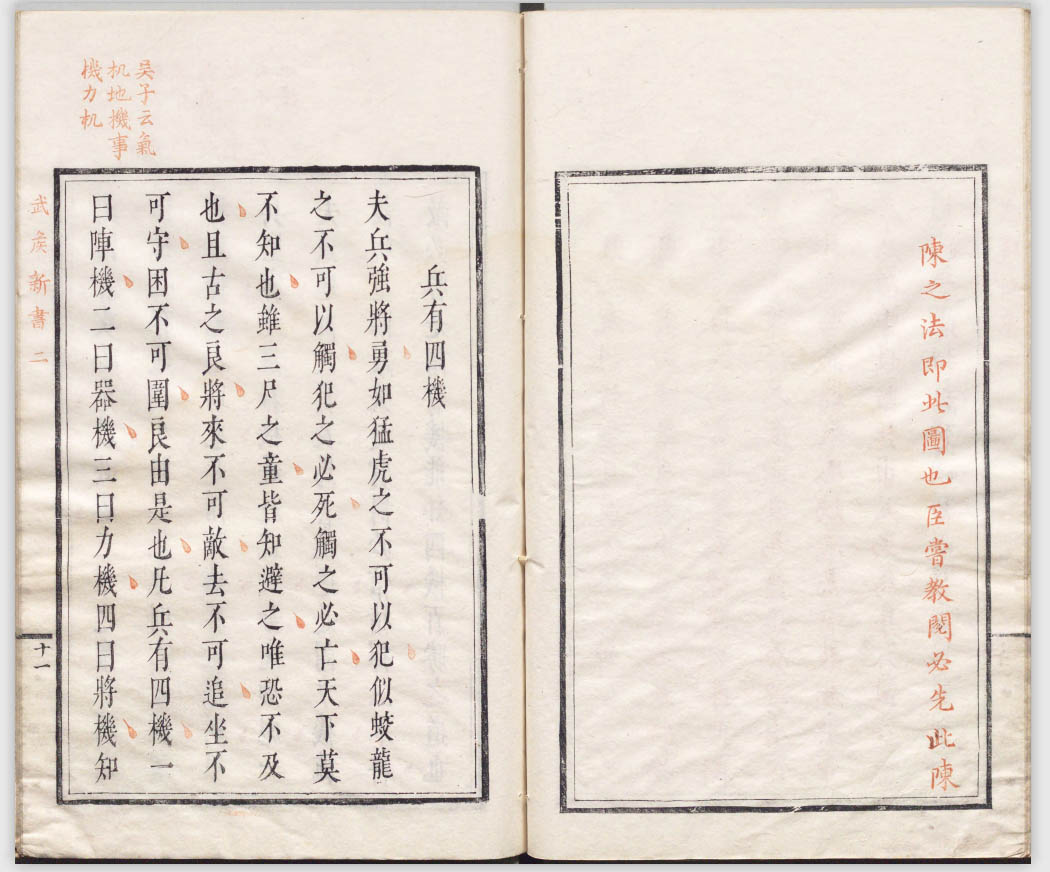 陳之法即此圖也臣嘗教閱必先此陳
吴子云氣
机地機事
機力机
兵有四機
夫兵強將勇如猛虎之不可以犯似蛟龍
之不可以觸犯之必死觸之必亡天下莫
不知也雖三尺之童皆知避之唯恐不及
也且古之良將來不可敵去不可追坐不
可守困不可圍良由是也凡兵有四機一
曰陣機二曰器機三曰力機四曰將機知
武矦新書二
十一